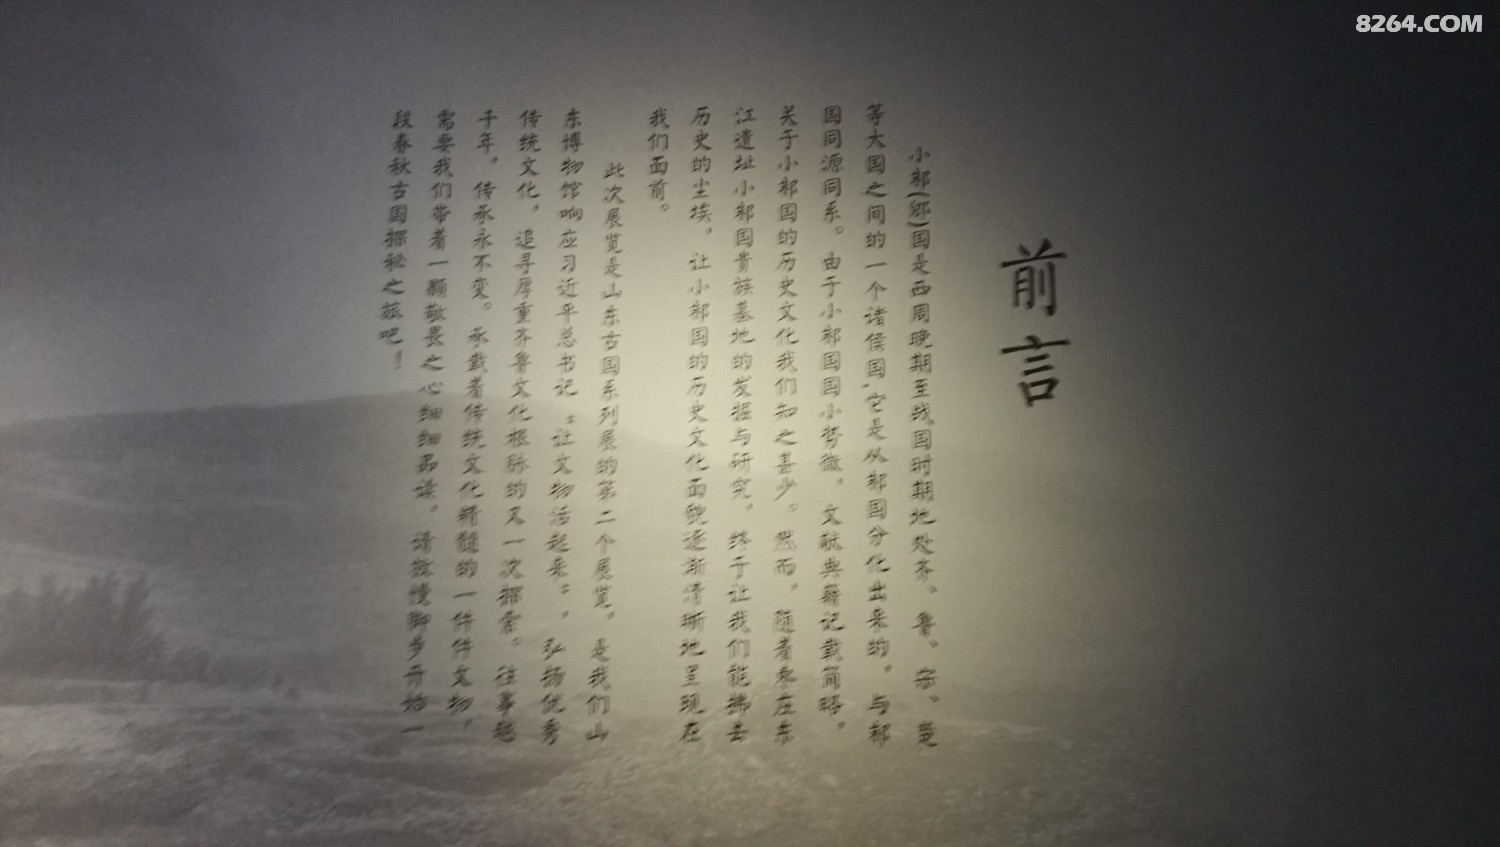 8264.COM
前言
小邾(郳)国是西周晚期至战国时期地处齐、鲁、宋、楚
等大国之间的一个诸侯国,它是从邾国分化出来的,与邾
国同源同系。由于小邾国国小势微,文献典籍记载简略,
关于小邾国的历史文化我们知之甚少。然而,随着枣庄东
江遗址小邾国贵族墓地的发掘与研究,终于让我们能拂去
历史的尘埃,让小邾国的历史文化面貌逐渐清晰地呈现在
我们面前。
此次展览是山东古国系列展的第二个展览,是我们山
东博物馆响应习近平总书记“让文物活起来”,弘扬优秀
传统文化,追寻厚重齐鲁文化根脉的又一次探索。往事越
千年,传承永不变。承载着传统文化精髓的一件件文物,
需要我们带着一颗敬畏之心细细品读。请放慢脚步开始一
段春秋古国探秘之旅吧！